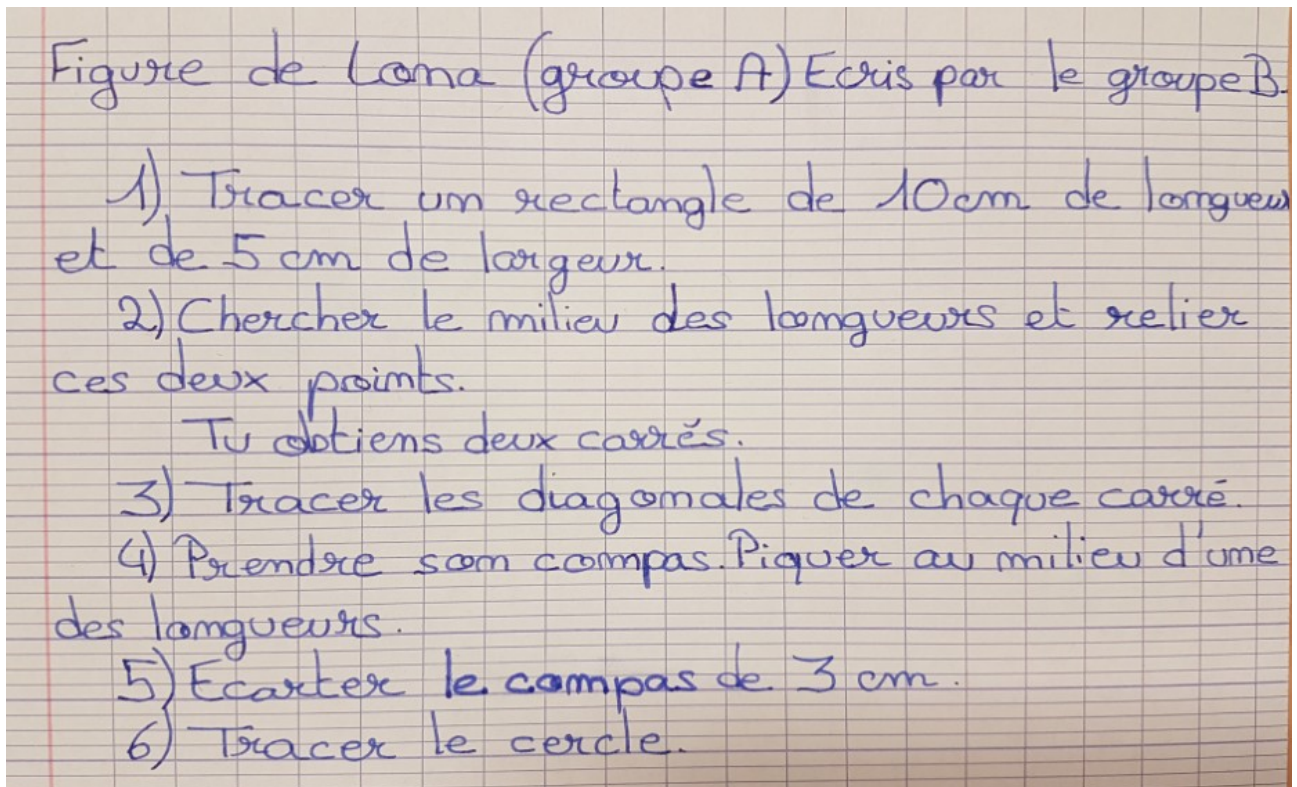 Figure de Lona (groupe A) Ecris par le groupe B.
1) Tracer un rectangle de 10cm de longueur
et de 5 cm de largeur.
2) Chercher le milieu des longueurs et relier
ces deux points.
Tu obtiens deux carrés.
3) Tracer les diagonales de chaque carré.
4) Prendre son compas. Piquer au milieu d'une
des longueurs.
5) Ecarter le compas de 3 cm.
6) Tracer le cercle.